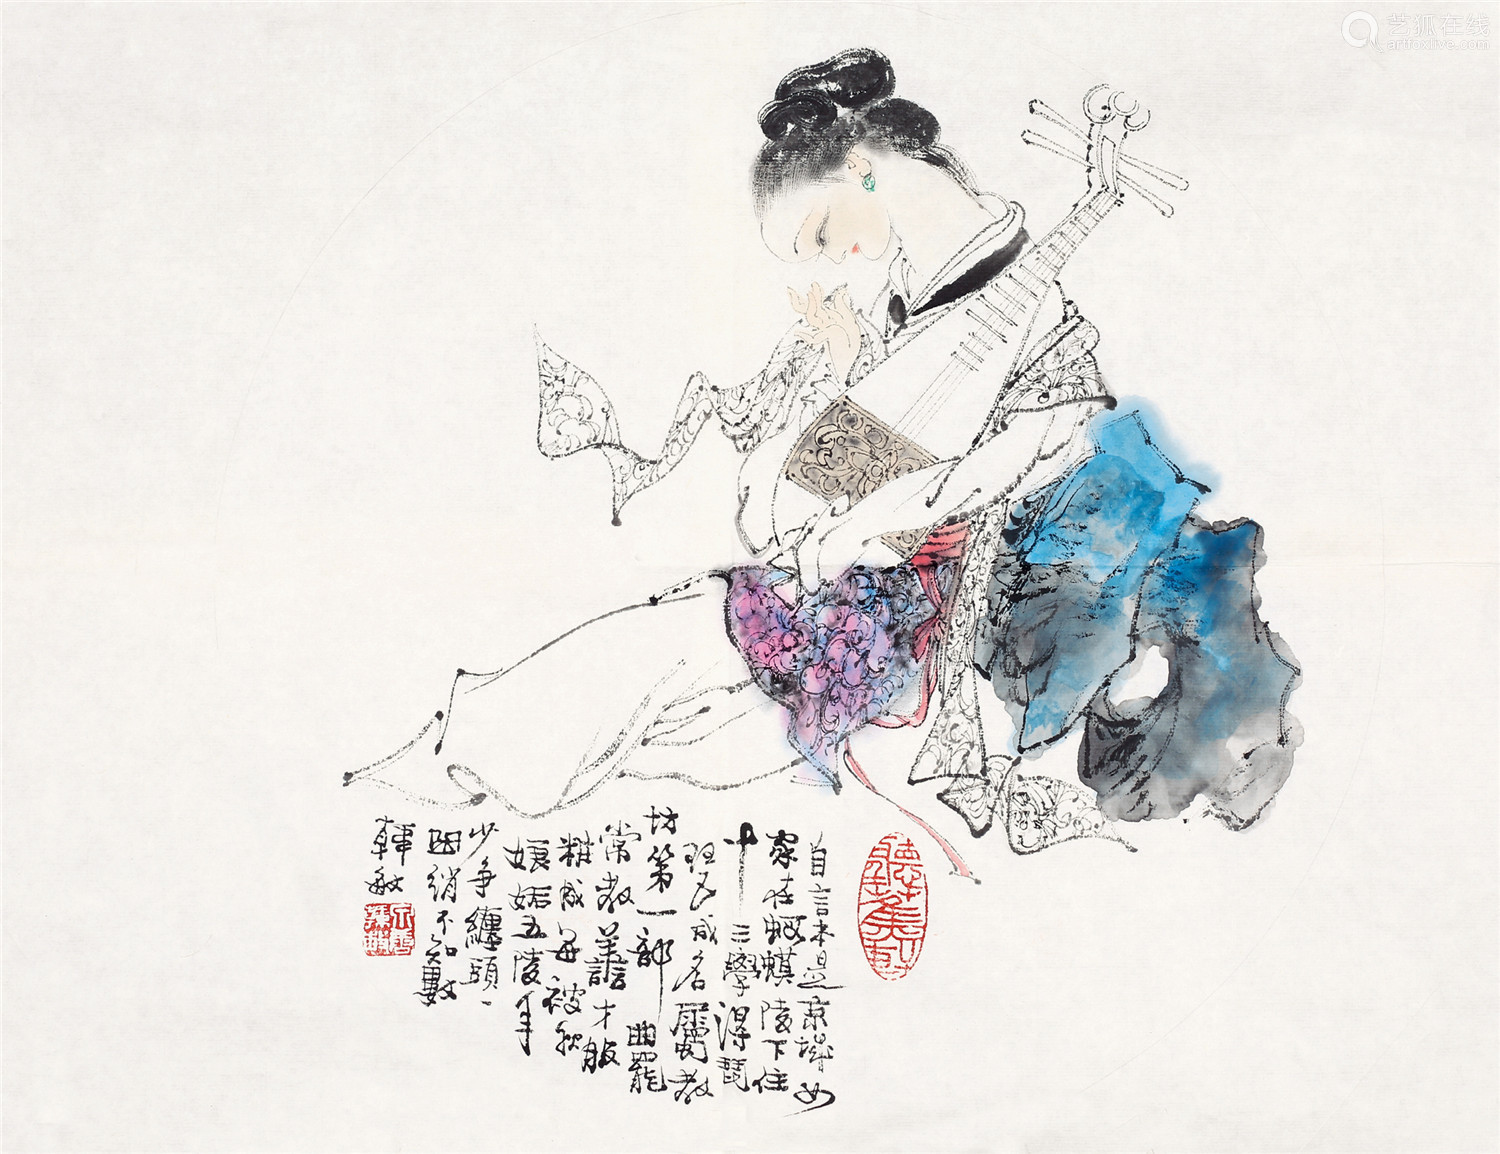 艺狐在线
artfoxlive.com
自言本是京城女
家在蝦蟆陵下住
十三學得琵
琶成名屬教
坊第一部曲罷
常教善才服
粧成每被秋
娘妬五陵年
少爭纏頭一
曲綃不知數
韓敏